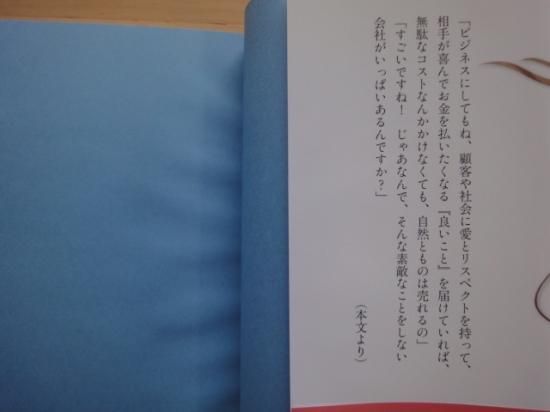 「ビジネスにしてもね、顧客や社会に愛とリスペクトを持って、
相手が喜んでお金を払いたくなる『良いこと』を届けていれば、
無駄なコストなんかかけなくても、自然とものは売れるの」
「すごいですね！　じゃあなんで、そんな素敵なことをしない
会社がいっぱいあるんですか？」
（本文より）